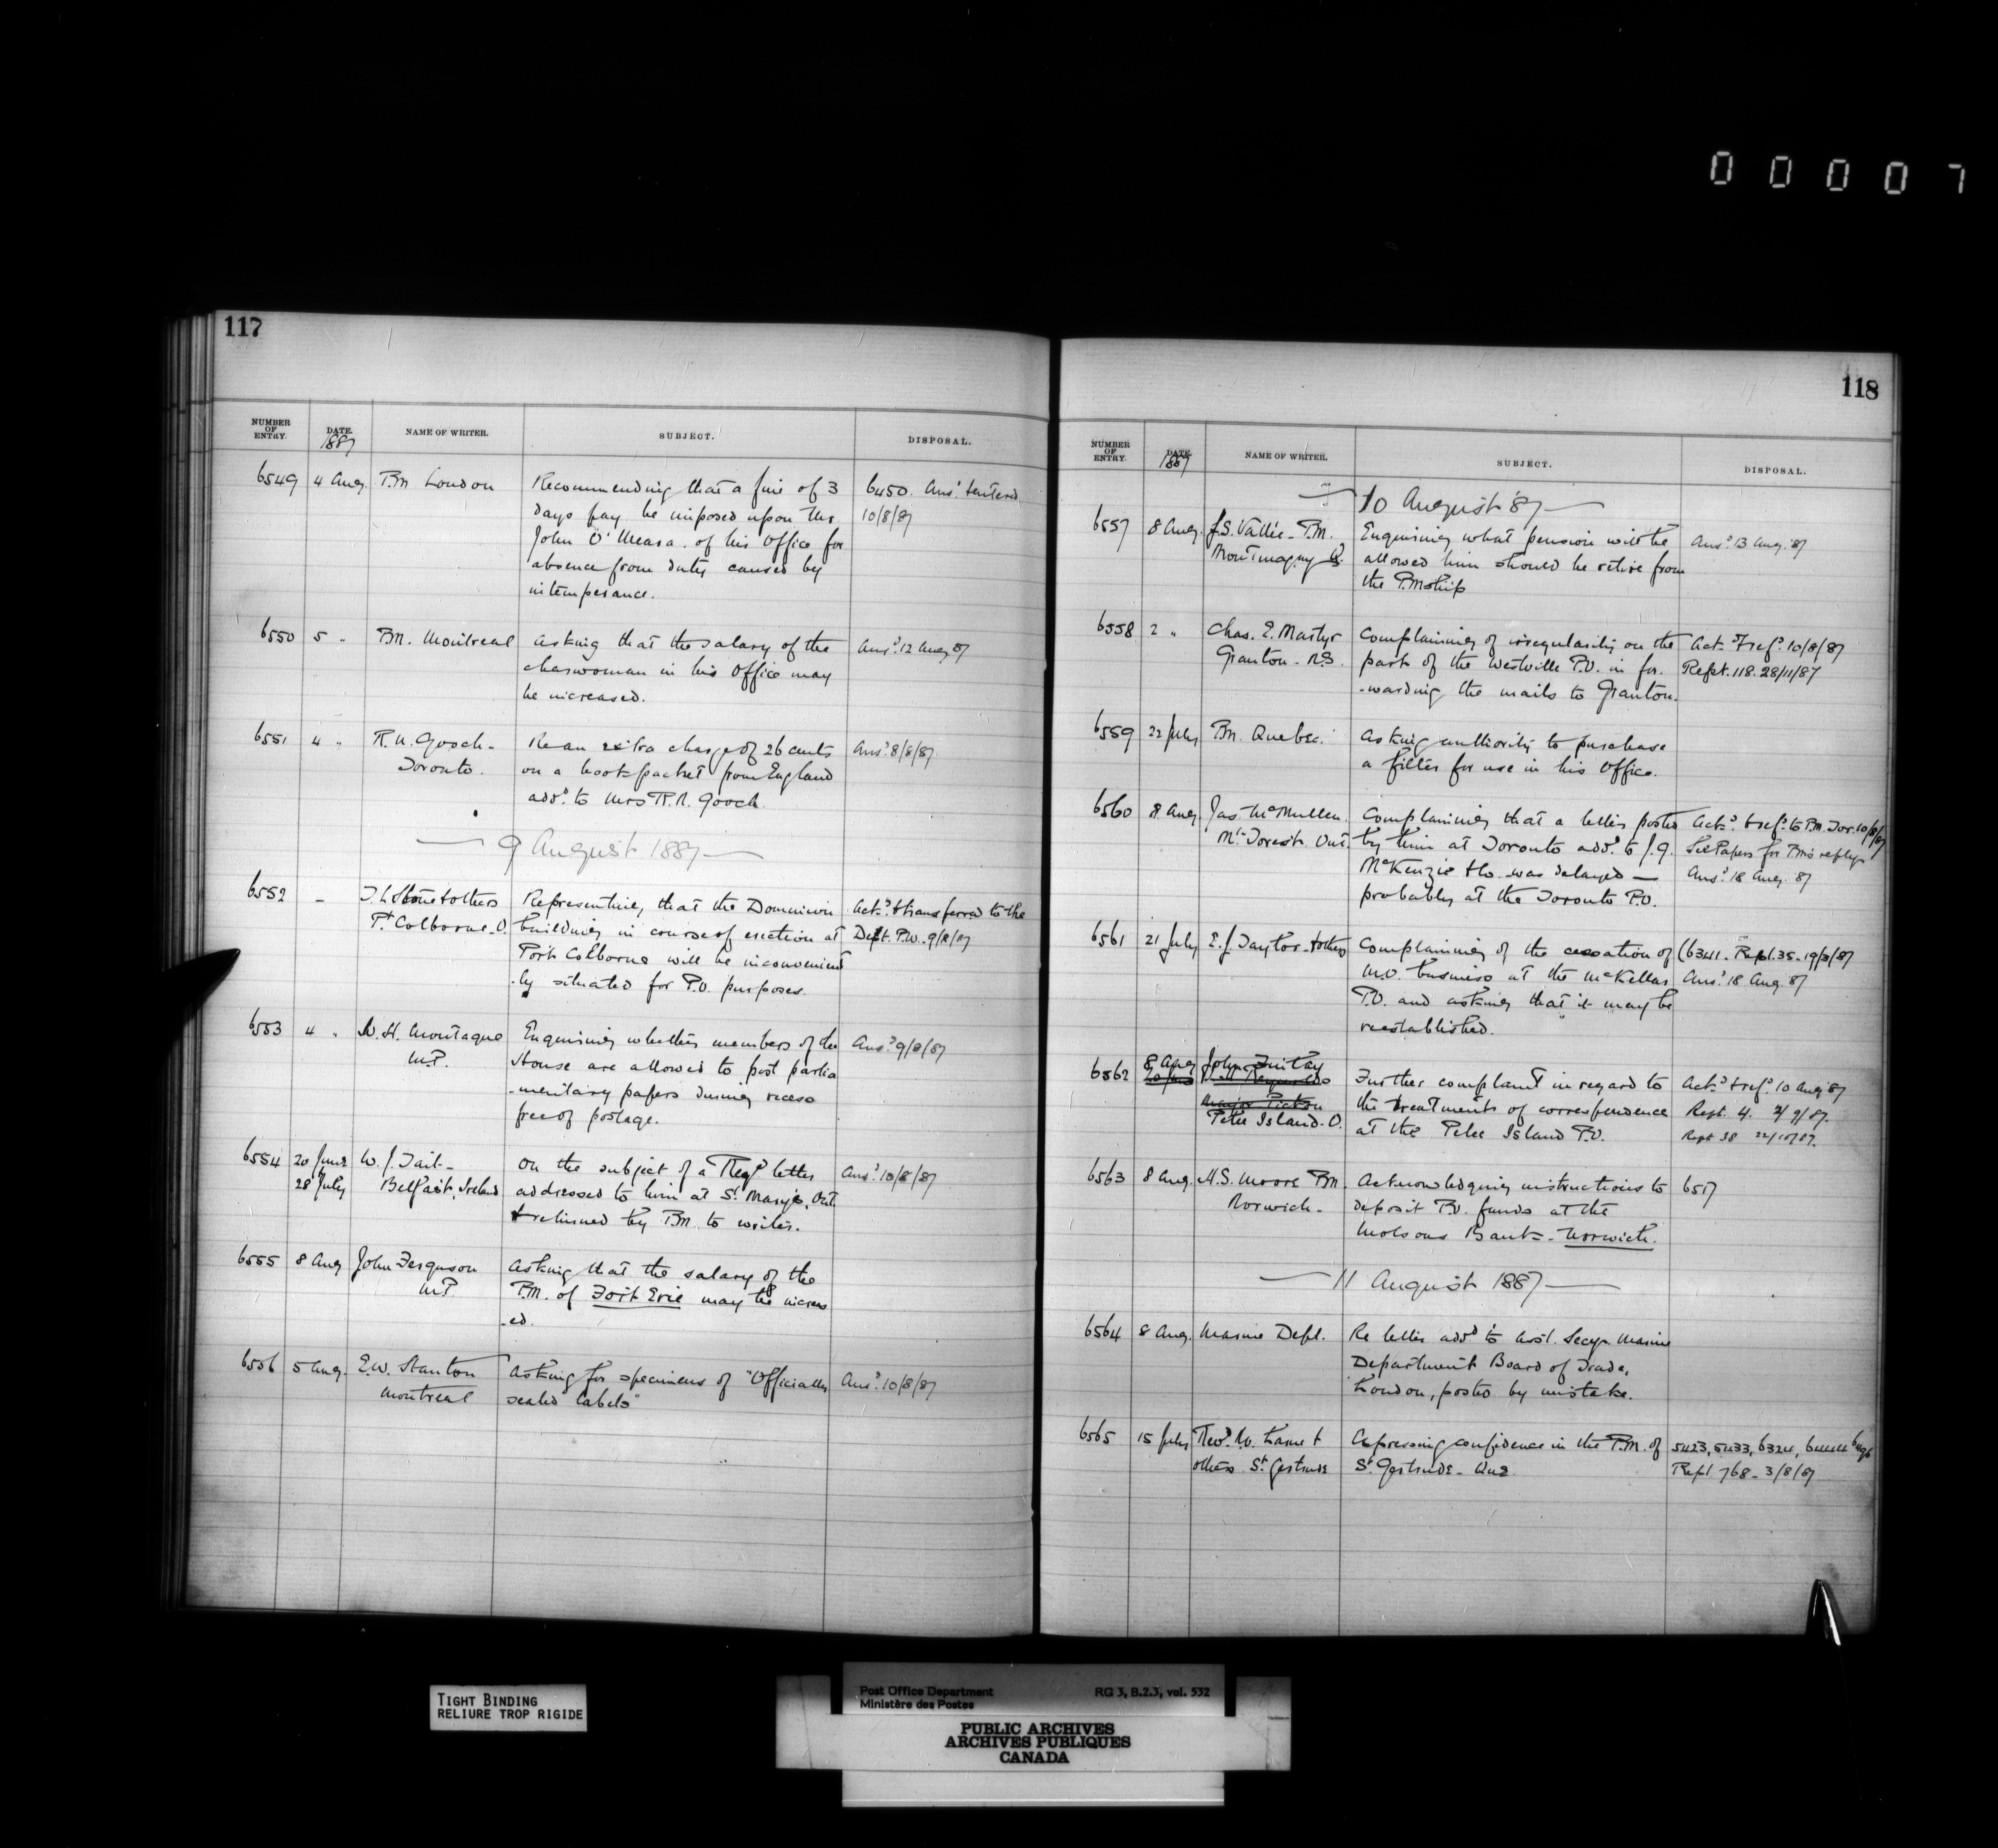 00007
117
NUMBER OF ENTRY. DATE. 1887 NAME OF WRITER. SUBJECT. DISPOSAL.
6549 4 Aug. P.M. London Recommending that a fine of 3 6450. Ans.d & entered
days pay be imposed upon Mr. 10/8/87
John O'Meara of his Office for
absence from duty caused by
intemperance.
6550 5 " P.M. Montreal Asking that the salary of the Ans.d 12 Aug 87
charwoman in his Office may
be increased.
6551 4 " R. R. Gooch - Re an extra charge of 26 cents Ans.d 8/8/87
Toronto. on a book packet from England
add.d to Mrs R. R. Gooch
9 August 1887
6552 - & others Representing that the Dominion Ack.d & transferred to the
Pt. Colborne. O. building in course of erection at Dept. P.W. 9/8/87
Port Colborne will be inconvenient
-ly situated for P.O. purposes.
6553 4 " W. H. Montague Enquiring whether members of the Ans.d 9/8/87
M.P. House are allowed to post parlia
-mentary papers during recess
free of postage.
6554 20 June W. J. Tait - On the subject of a Reg.d letter Ans.d 10/8/87
28 July Belfast, Ireland addressed to him at St. Marys, Ont.
& returned by P.M. to writer.
6555 8 Aug John Ferguson Asking that the salary of the
M.P. P.M. of Fort Erie may be increas
-ed.
6556 5 Aug. E. W. Stanton Asking for specimens of "Officially Ans.d 10/8/87
Montreal sealed labels"
118
NUMBER OF ENTRY. DATE. 1887 NAME OF WRITER. SUBJECT. DISPOSAL.
10 August '87
6557 8 Aug. J. S. Vallée - P.M. Enquiring what pension will be Ans.d 13 Aug. 87
Montmagny Q. allowed him should he retire from
the P.M.ship
6558 2 " Chas. E. Martyr Complaining of irregularity on the Ack.d & ref.d 10/8/87
Granton - N.S. part of the Westville P.O. in for- Rept. 118. 28/11/87
-warding the mails to Granton.
6559 22 July P.M. Quebec. Asking authority to purchase
a filter for use in his Office.
6560 8 Aug. Jas. McMullen. Complaining that a letter posted Ack.d & ref.d to P.M. Tor. 10/8/87
Mt. Forest. Ont. by him at Toronto add.d to J. G. See Papers for P.M's reply
McKenzie & Co. was delayed — Ans.d 18 Aug. 87
probably at the Toronto P.O.
6561 21 July E. J. Taylor - & others Complaining of the cessation of (6341. Rept. 35- 19/3/87
M.O. business at the McKellar Ans.d 18 Aug. 87
P.O. and asking that it may be
reestablished.
6562 8 Aug John Finlay Further complaint in regard to Ack.d & ref.d 10 Aug 87
Pelee Island. O. the treatment of correspondence Rept. 4. 2/9/87.
at the Pelee Island P.O. Rept 38 22/10/87.
6563 8 Aug. M. S. Moore P.M. Acknowledging instructions to 6517
Norwich - deposit P.O. funds at the
Molsons Bank - Norwich.
11 August 1887
6564 8 Aug. Marine Dept. Re letter add.d to Asst. Secy. Marine
Department Board of Trade,
London, posted by mistake.
6565 15 July Rev.d & Expressing confidence in the P.M. of 5423, 5433, 6324, 6444
others St. Gertrude St. Gertrude - Que Rept 768 - 3/8/87
TIGHT BINDING
RELIURE TROP RIGIDE
Post Office Department RG 3, B.2.3, vol. 532
Ministère des Postes
PUBLIC ARCHIVES
ARCHIVES PUBLIQUES
CANADA